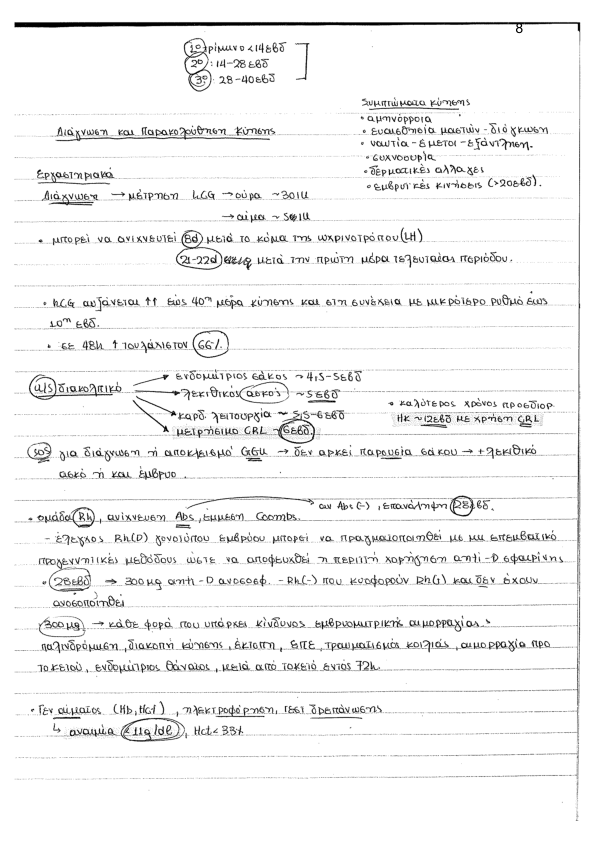 8
1ο τρίμηνο <14εβδ
2ο : 14-28εβδ
3ο : 28-40εβδ
Συμπτώματα κύησης
• αμηνόρροια
• ευαισθησία μαστών - διόγκωση
• ναυτία - έμετοι - εξάντληση.
• συχνοουρία
• δερματικές αλλαγές
• εμβρυϊκές κινήσεις (>20εβδ).
Διάγνωση και Παρακολούθηση Κύησης
Εργαστηριακά
Διάγνωση → μέτρηση hCG → ούρα ~30IU
→ αίμα ~ 5IU
• μπορεί να ανιχνευτεί 8d μετά το κύμα της ωχρινοτρόπου (LH)
21-22d μετά την πρώτη μέρα τελευταίας περιόδου.
• hCG αυξάνεται ↑↑ έως 40η μέρα κύησης και στη συνέχεια με μικρότερο ρυθμό έως
10η εβδ.
• σε 48h ↑ τουλάχιστον 66%
u/s διακολπικό → ενδομήτριος σάκος → 4,5-5εβδ
→ λεκιθικός ασκός ~ 5εβδ
→ καρδ. λειτουργία ~ 5,5-6εβδ
→ μετρήσιμο CRL ~ 6εβδ.
• καλύτερος χρόνος προσδιορ.
ΗΚ ~12εβδ με χρήση CRL
SOS για διάγνωση ή αποκλεισμό ΕΜΚ → δεν αρκεί παρουσία σάκου → + λεκιθικό
ασκό ή και έμβρυο.
αν Abs (-), επανάληψη 28εβδ.
• ομάδα Rh, ανίχνευση Abs, έμμεση Coombs.
- έλεγχος Rh(D) γονοτύπου εμβρύου μπορεί να πραγματοποιηθεί με μη επεμβατικό
προγεννητικές μεθόδους ώστε να αποφευχθεί η περιττή χορήγηση anti-D σφαιρίνης
• 28εβδ → 300μg anti-D ανοσοσφ. - Rh(-) που κυοφορούν Rh(+) και δεν έχουν
ανοσοποιηθεί
300μg → κάθε φορά που υπάρχει κίνδυνος εμβρυομητρικής αιμορραγίας :
παλινδρόμηση, διακοπή κύησης, έκτοπη, ΕΠΕ, τραυματισμός κοιλιάς, αιμορραγία προ
τοκετού, ενδομήτριος θάνατος, μετά από τοκετό εντός 72h.
• Γεν αίματος (Hb, Hct), ηλεκτροφόρηση, τεστ δρεπάνωσης
↳ αναιμία <11g/dl, Hct<33%